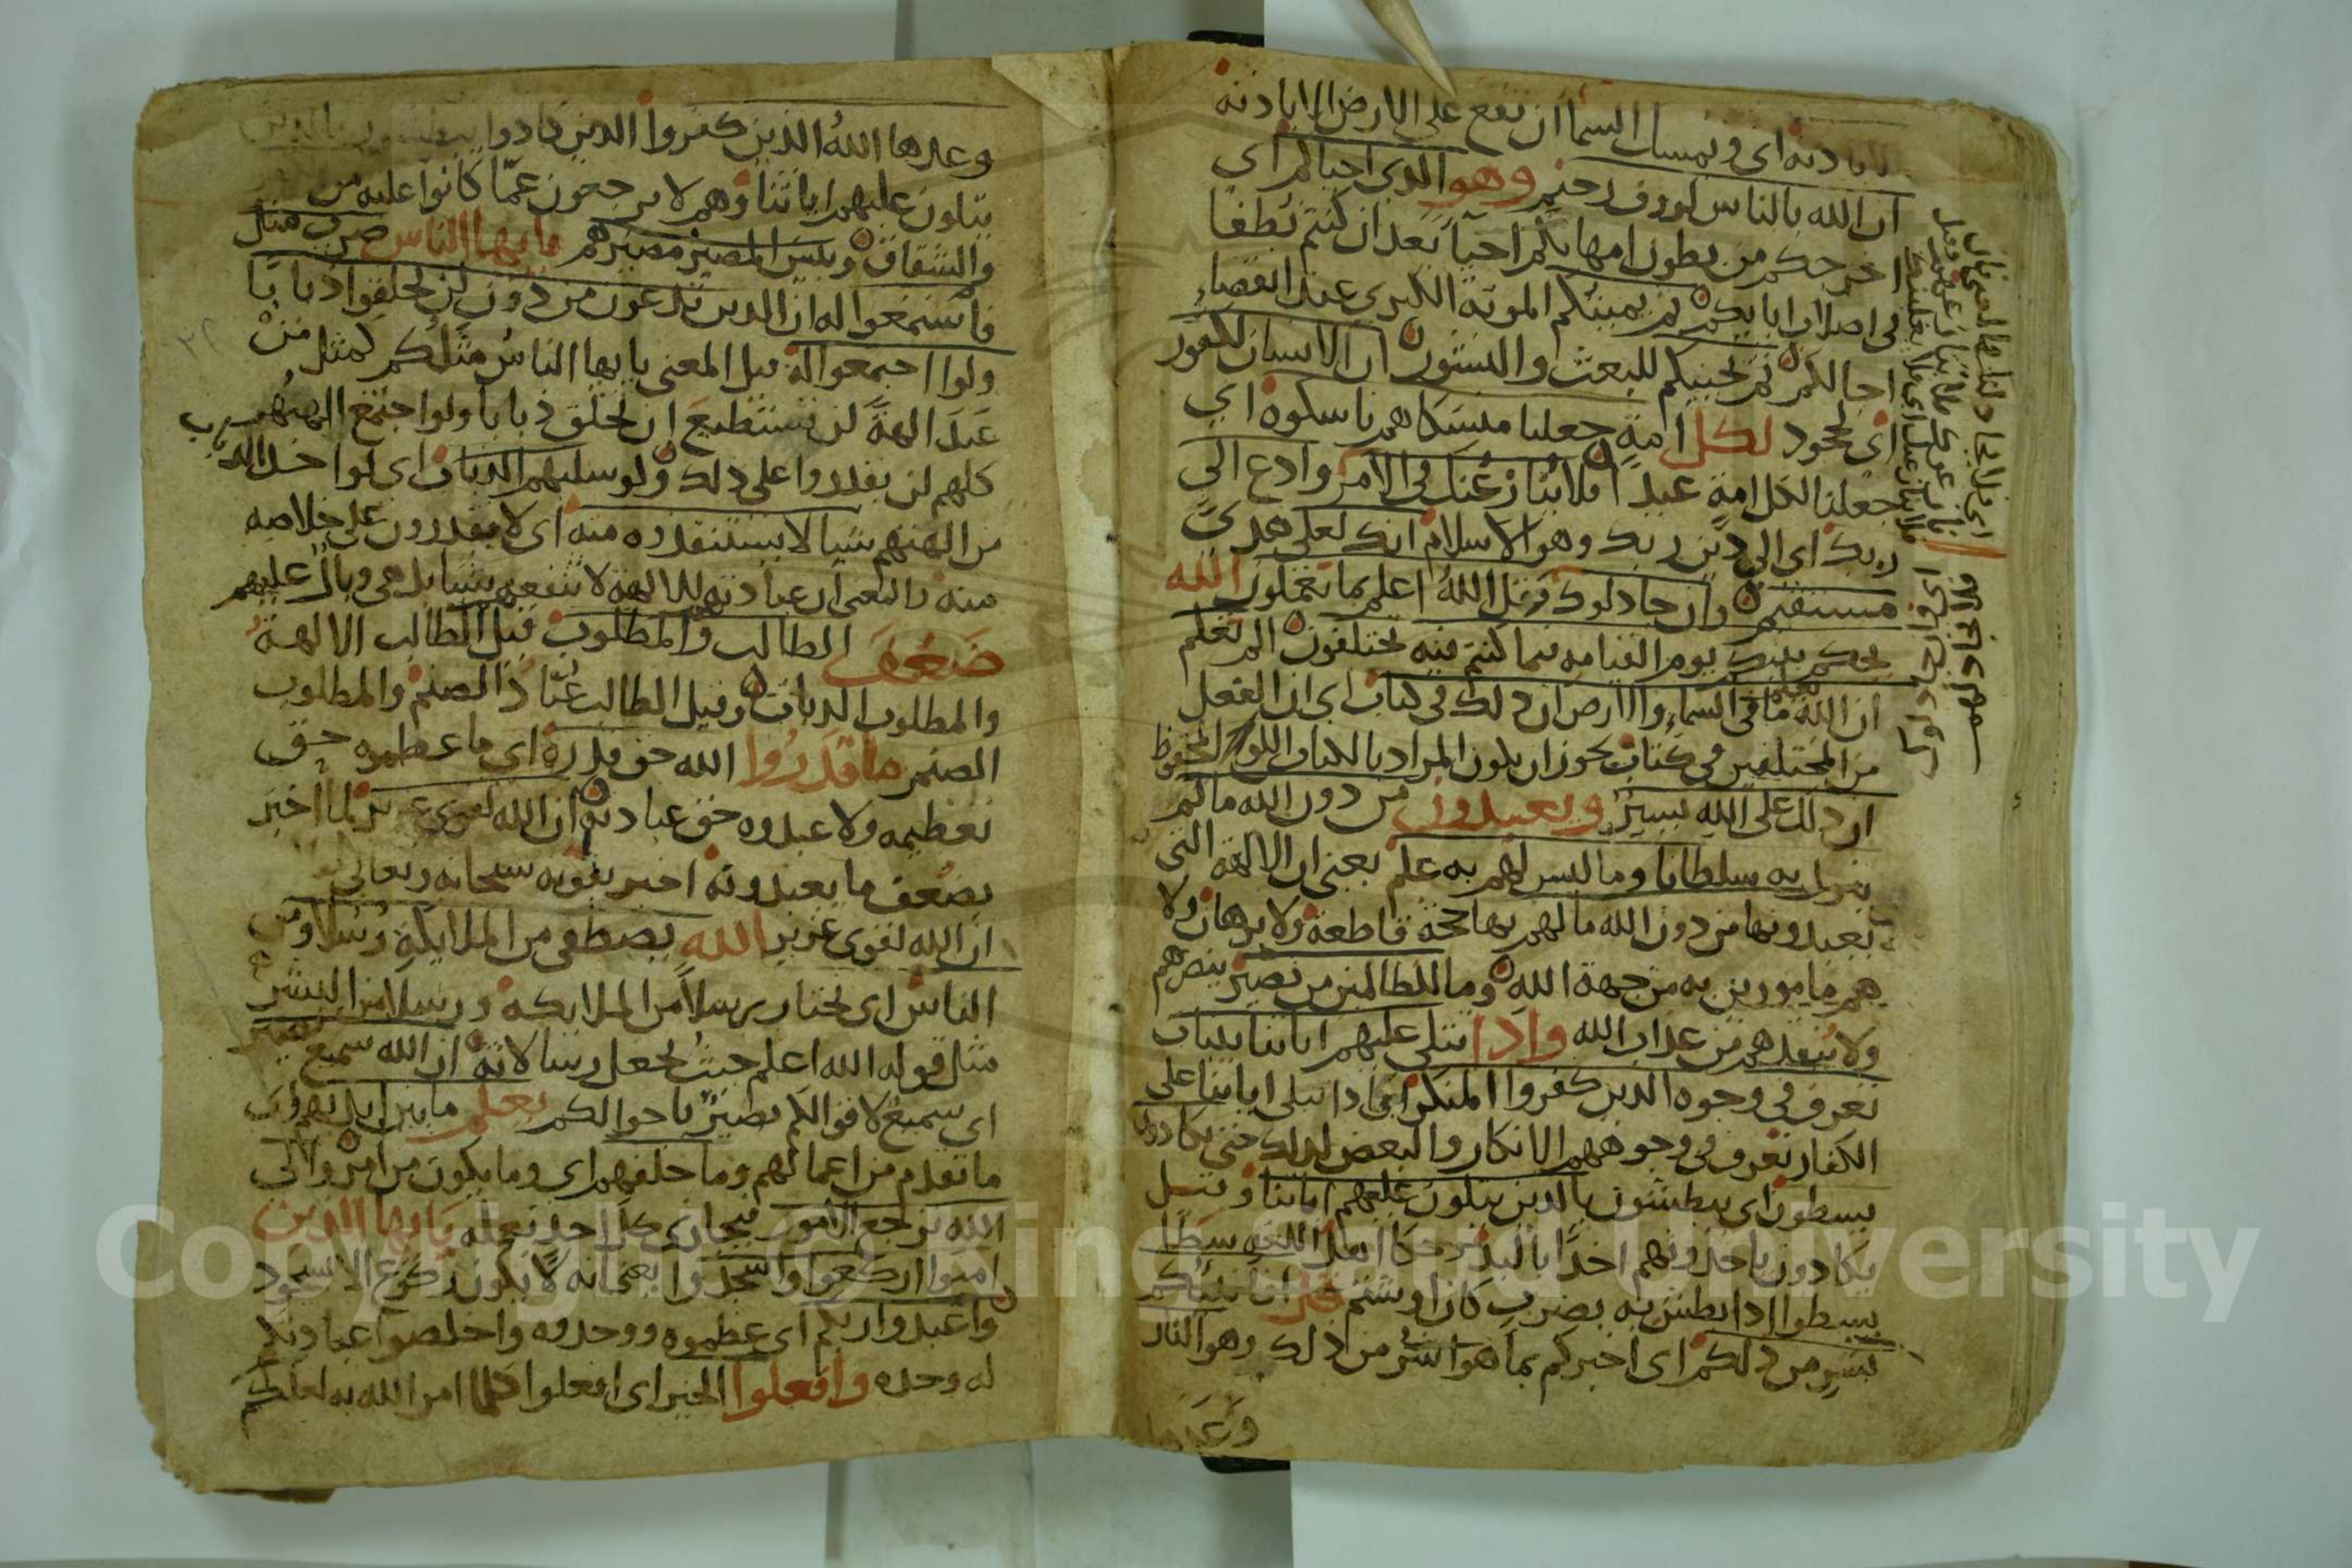 ويمسك السما ان تقع على الارض الا باذنه
الا باذنه اى ويمسك
ان الله بالناس لروف رحيم وهو الذي احياكم اى
اخرجكم من بطون امهاتكم احيآ بعد ان كنتم نطفا
فى اصلاب ابايكم ثم يميتكم الموتة الكبرى عند انقضاء
اجالكم ثم يحييكم للبعث والنشور ان الانسان لكفور
اى لجحود لكل امة جعلنا منسكا هم ناسكوه اى
جعلنا لكل امة عيدا فلا ينازعنك فى الامر وادع الى
ربك اى الى دين ربك وهو الاسلام انك لعلى هدى
مستقيم وان جادلوك فقل الله اعلم بما تعملون الله
يحكم بينكم يوم القيامه فيما كنتم فيه تختلفون الم تعلم
ان الله يعلم ما فى السماء والارض ان ذلك فى كتاب اى ان الفعل
من المختلفين فى كتاب يجوز ان يكون المراد بالكتاب اللوح المحفوظ
ان ذلك على الله يسير ويعبدون من دون الله ما لم
ينزل به سلطانا وما ليس لهم به علم يعنى ان الالهة التى
يعبدونها من دون الله ما لهم بها حجة قاطعة ولا برهان ولا
هم مامورين به من جهة الله وما للظالمين من نصير ينصرهم
ولا ينقذهم من عذاب الله واذا تتلى عليهم اياتنا بينات
تعرف فى وجوه الذين كفروا المنكر اى اذا تتلى اياتنا على
الكفار تعرف فى وجوههم الانكار والبغض لذلك حتى يكادون
يسطون اى يبطشون بالذين يتلون عليهم اياتنا وقيل
يكادون ياخذونهم اخذا باليد اهل اللغه سطا
يسطوا اذا بطش به بضرب كان او شتم قل افانبئكم
بشر من ذلكم اى اخبركم بما هو اشر من ذلك وهو النار
وعدها
وعدها الله الذين كفروا الذين كادوا يبطشون بالذين
يتلون عليهم اياتنا وهم لا يرجعون عمّا كانوا عليه من
والشقاق وبئس المصير مصيرهم يايها الناس ضرب مثل
فاستمعوا له ان الذين تدعون من دون لن يخلقوا ذبابا
ولوا اجتمعوا له قيل المعنى يايها الناس مثلكم كمثل من
عَبَدَ الهةً لن تستطيع ان تخلق ذبابا ولوا اجتمع
كلهم لن يقدروا على ذلك ولو سلبهم الذباب اى لوا اخذ الذباب
من الهتهم شيا لا يستنقذوه منه اى لا يقدرون على خلاصه
منه فالمعنى ان عبادتهم للالهة لا تنفعهم بشيا بل هى وبال عليهم
ضَعُفَ الطالب والمطلوب قيل الطالب الالهة
والمطلوب الذباب وقيل الطالب عبّاد الصنم والمطلوب
الصنم ما قَدَرُوا الله حق قدره اى ما عظموه حق
تعظيمه ولا عبدوه حق عبادته ان الله لقوى عزيز لما اخبر
بضعف ما يعبدونه اخبر بقوته سبحانه وتعالى
ان الله لقوى عزيز الله يصطفى من الملايكة رسلا ومن
الناس اى يختار رسلا من الملايكه ورسلا من البشر
مثل قوله الله اعلم حيث يجعل رسالاته ان الله سميع بصير
اى سميع لاقوالكم بصير باحوالكم يعلم ما بين ايديهم اى
ما تقدم من اعمالهم وما خلفهم اى وما يكون من امر والى
الله ترجع الامور فيجازى كل احد بعمله يايها الذين
امنوا اركعوا واسجدوا يعنى انه لا يكون ركوع الا بسجود
واعبدوا ربكم اى عظموه ووحدوه واخلصوا عبادتكم
له وحده وافعلوا الخير اى افعلوا كلما امر الله به لعلكم
Copyright © King Saud University